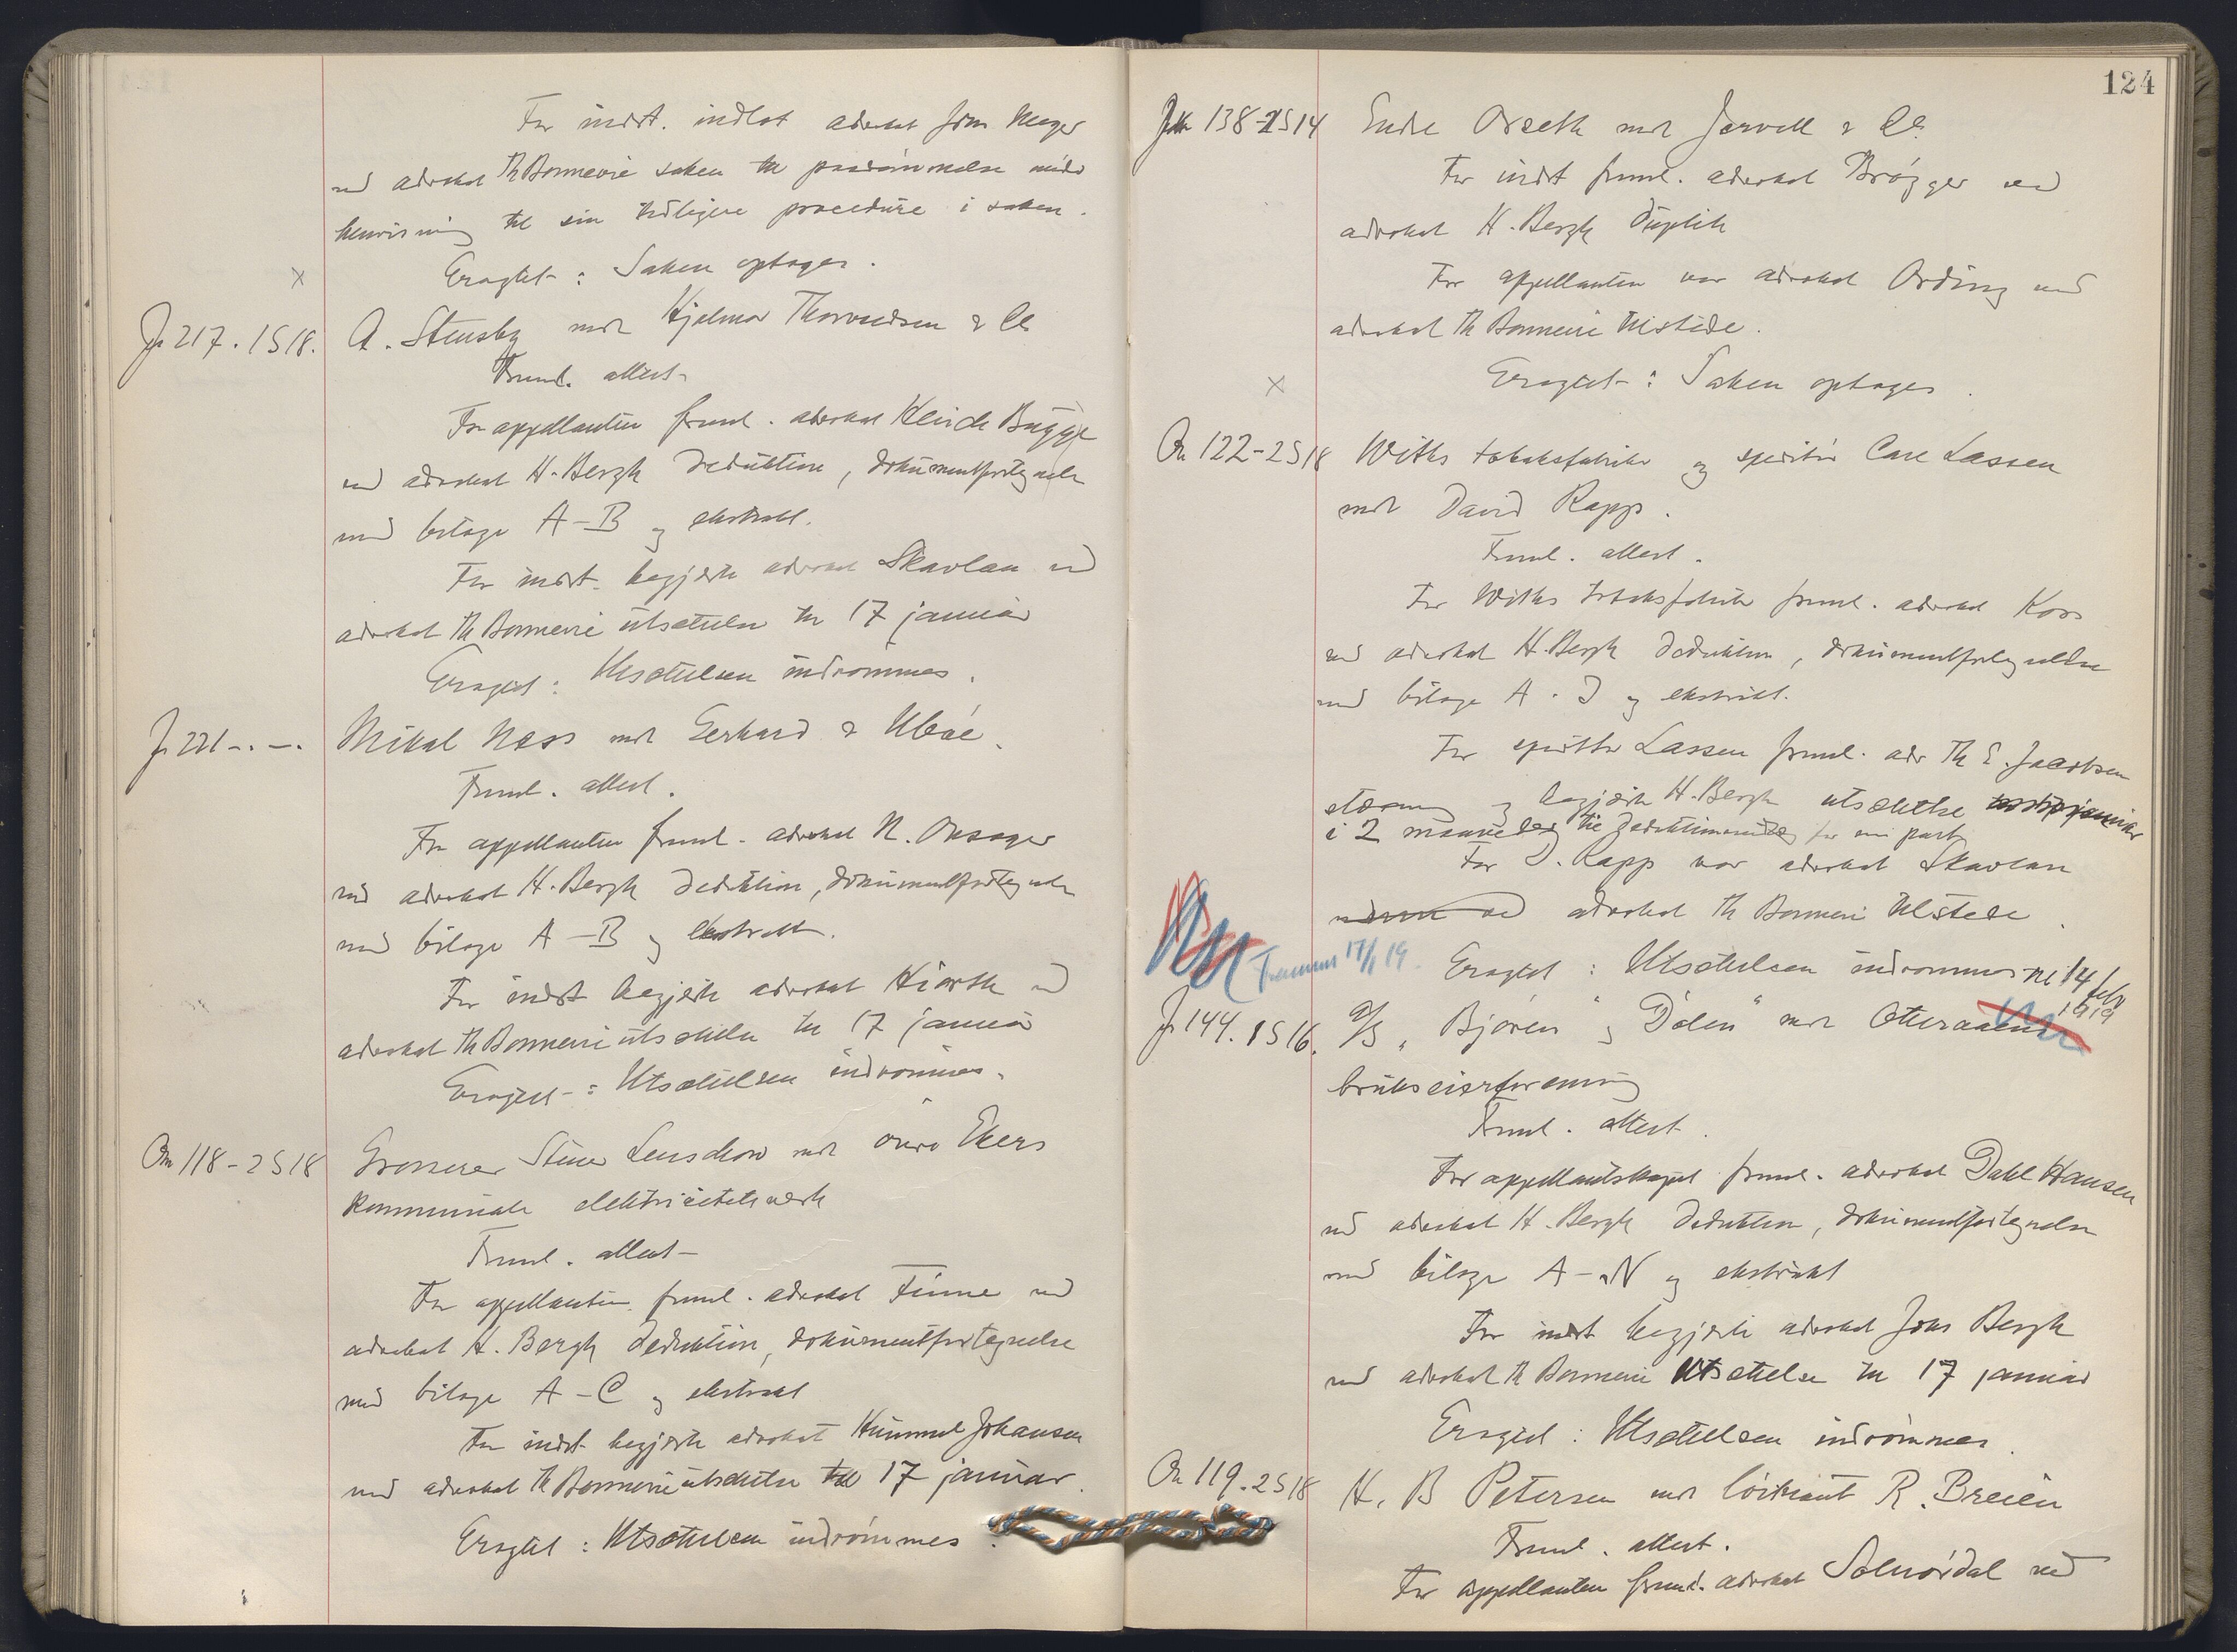 For indst. indlot advokat Jom Meyer
ved advokat Th Bonnevie saken til paadømmelse under
henvisning til sin tidligere procedure i saken.
Eragtet: Saken optages.
x
Jr 217. 1 S 18. A. Stensby mot Hjalmar Thorvaldsen & Co
Freml. attest
For appellanten freml. advokat Henrik Bugge
ved advokat H. Bergh deduktion, dokumentfortegnelse
med bilage A–B og ekstrakt.
For indst. begjærte advokat Skavlan ved
advokat Th Bonnevie utsættelse til 17 januar
Eragtet: Utsættelsen indrømmes.
Jr 221 –.–. Mikal Næss mot Gerhard & Uleae.
Freml. attest.
For appellanten freml. advokat N. Onsager
ved advokat H. Bergh deduktion, dokumentfortegnelse
med bilage A–B og ekstrakt.
For indst begjærte advokat Hiorth ved
advokat Th Bonnevie utsættelse til 17 januar
Eragtet: Utsættelsen indrømmes.
On 118–2 S 18 Grosserer Stener Lenschow mot øvre Ekers
kommunale elektricitetsverk
Freml. attest
For appellanten freml. advokat Finne ved
advokat H. Bergh deduktion, dokumentfortegnelse
med bilage A–C og ekstrakt
For indst begjærte advokat Hummel Johansen
ved advokat Th Bonnevie utsættelse til 17 januar.
Eragtet: Utsættelsen indrømmes.
124
138–1 S 14 Endre Orseth mot Jervell & Co.
For indst freml. advokat Brøgger ved
advokat H. Bergh duplik
For appellanten var advokat Ording ved
advokat Th Bonnevie tilstede.
x
Eragtet: Saken optages.
On 122–2 S 18 Withs tobaksfabrik og speditør Carl Lassen
mot David Rapp.
Freml. attest.
For Withs tobaksfabrik freml. advokat Koss
ved advokat H. Bergh deduktion, dokumentfortegnelse
med bilage A–J og ekstrakt.
For speditør Lassen freml. adv Th E. Jacobsen
stævning og begjærte H. Bergh utsættelse
i 2 maaneder til for sin part
For D. Rapp var advokat Skavlan
ved advokat Th Bonnevie tilstede.
Eragtet: Utsættelsen indrømmes til 14 febr
1919
Fremmes 17/1 19.
Jr 144. 1 S 16. A/S "Bjoren og Dølen" mot Otteraaens
brukseierforening
Freml. attest.
For appellantskapet freml. advokat Dahl Hansen
ved advokat H. Bergh deduktion, dokumentfortegnelse
med bilage A–N og ekstrakt
For indst begjærte advokat Johs Bergh
ved advokat Th Bonnevie utsættelse til 17 januar
Eragtet: Utsættelsen indrømmes.
On 119–2 S 18 H. B Petersen mot løitnant R. Breien
Freml. attest.
For appellanten freml. advokat Solnørdal ved